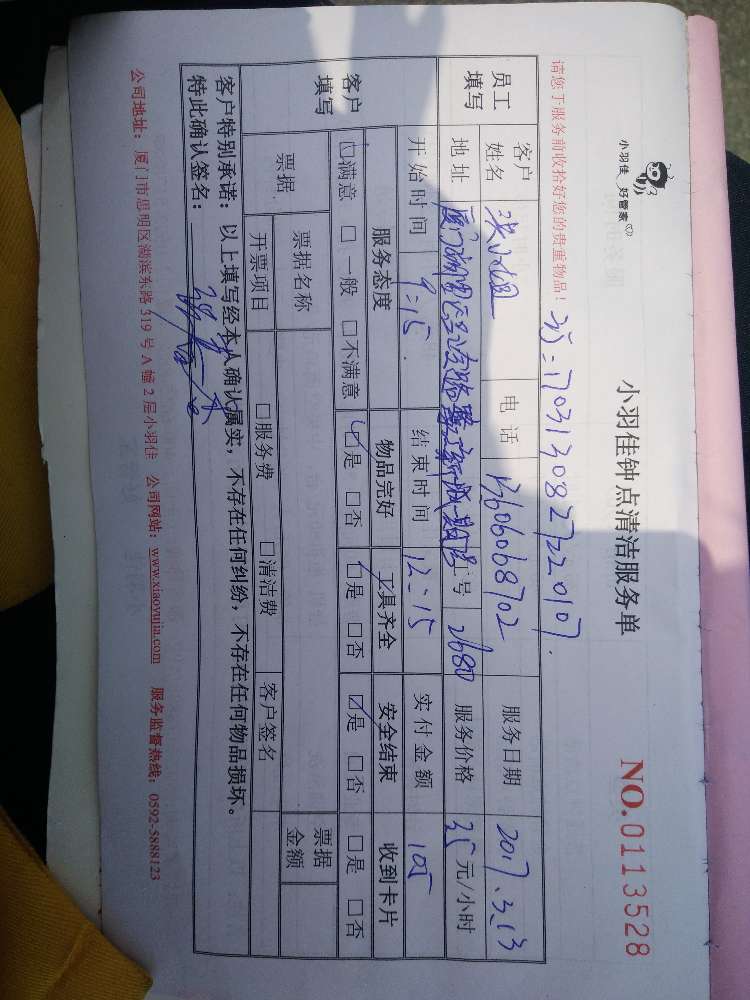 小羽佳 好管家
小羽佳钟点清洁服务单
NO.0113528
请您于服务前收拾好您的贵重物品!
17031308272210107.
员工填写
客户姓名 小姐 电话 13606068702 服务日期 2017.3.13
地址 厦门 号 2680 服务价格 35元/小时
开始时间 9:15. 结束时间 12:15 实付金额 105
客户填写
服务态度 物品完好 工具齐全 安全结束 收到卡片
□满意 □一般 □不满意 □是 □否 □是 □否 □是 □否 □是 □否
票据 票据名称 票据金额
开票项目 □服务费 □清洁费 客户签名
客户特别承诺:以上填写经本人确认属实,不存在任何纠纷,不存在任何物品损坏。
特此确认签名:
公司地址:厦门市思明区湖滨东路319号A幢2层小羽佳 公司网站:www.xiaoyujia.com 服务监督热线:0592-5888123